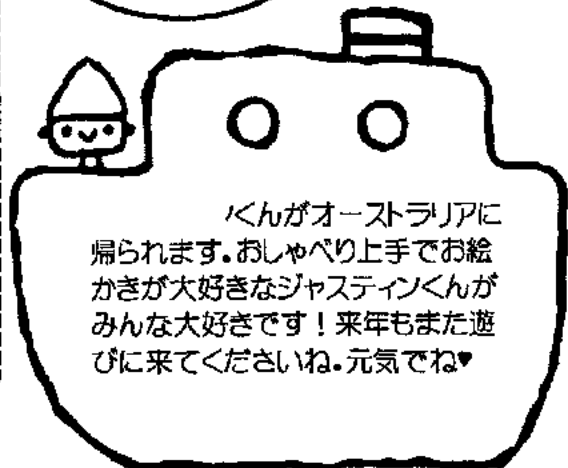 くんがオーストラリアに
帰られます。おしゃべり上手でお絵
かきが大好きなジャスティンくんが
みんな大好きです！来年もまた遊
びに来てくださいね。元気でね♥